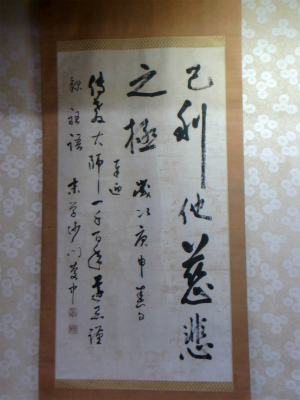 己利他慈悲
之極 歳次庚申春日
傳教大師一千百年遠忌謹
録祖語 末学沙門